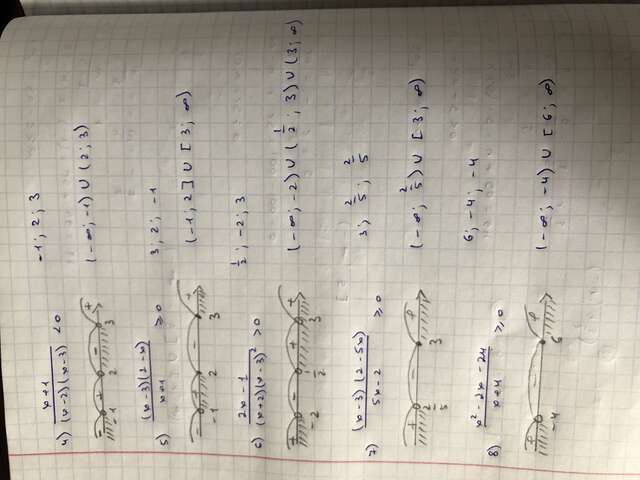 4) (x+1)/((x-2)(x-3)) < 0 -1; 2; 3
- + - +
-1 2 3 (-∞; -1) ∪ (2; 3)
5) ((x-3)(2-x))/(x+1) ≥ 0 3; 2; -1
- + - +
-1 2 3 (-1; 2] ∪ [3; ∞)
6) (2x-1)/((x+2)(x-3)²) > 0 1/2; -2; 3
+ - + +
-2 1/2 3 (-∞; -2) ∪ (1/2; 3) ∪ (3; ∞)
7) ((x-3)(2-5x))/(5x-2) ≥ 0 3; 2/5; 2/5
+ - +
2/5 3 (-∞; 2/5) ∪ [3; ∞)
8) (x²-2x-24)/(x+4) ≥ 0 6; -4; -4
+ - +
-4 6 (-∞; -4) ∪ [6; ∞)